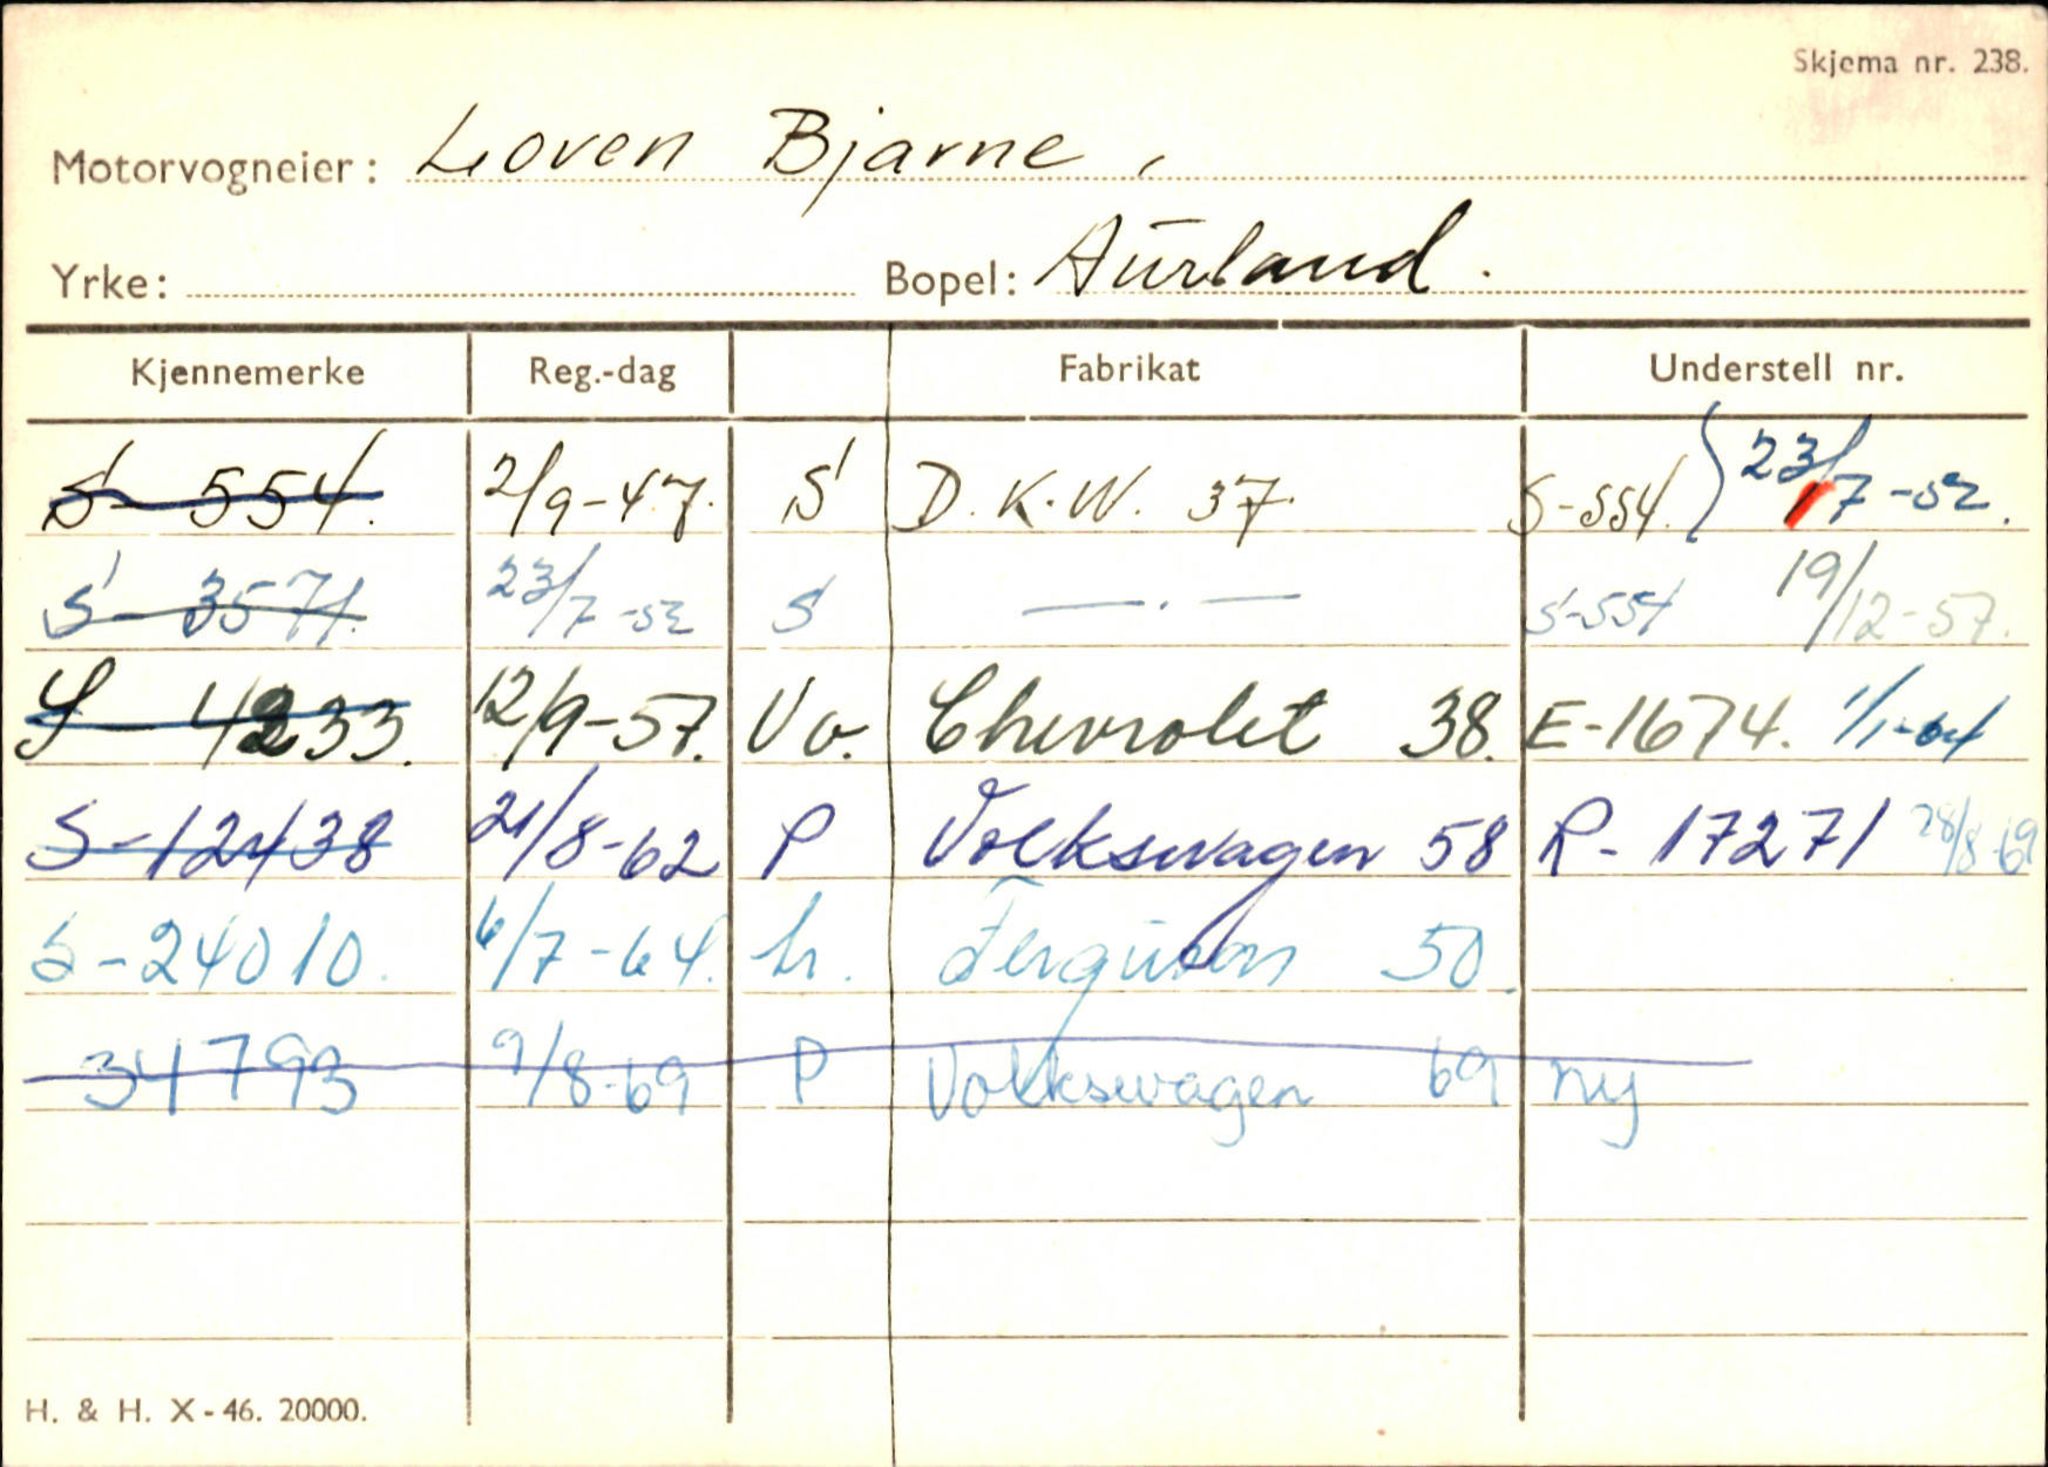 Skjema nr. 238.
Motorvogneier: Loven Bjarne,
Yrke: Bopel: Aurland.
Kjennemerke Reg.-dag Fabrikat Understell nr.
S - 554. 2/9-47. S D.K.W. 37. S-554. } 23/7-52.
S - 3571. 23/7-52 S —.— S-554 19/12-57.
S - 4233. 12/9-57. Va. Chevrolet 38. E-1674. 1/1-64
S-12438 21/8-62 P Volkswagen 58 R-17271 28/8-69
S-24010. 6/7-64. Tr. Ferguson 50.
34793 9/8-69 P Volkswagen 69 ny
H. & H. X-46. 20000.